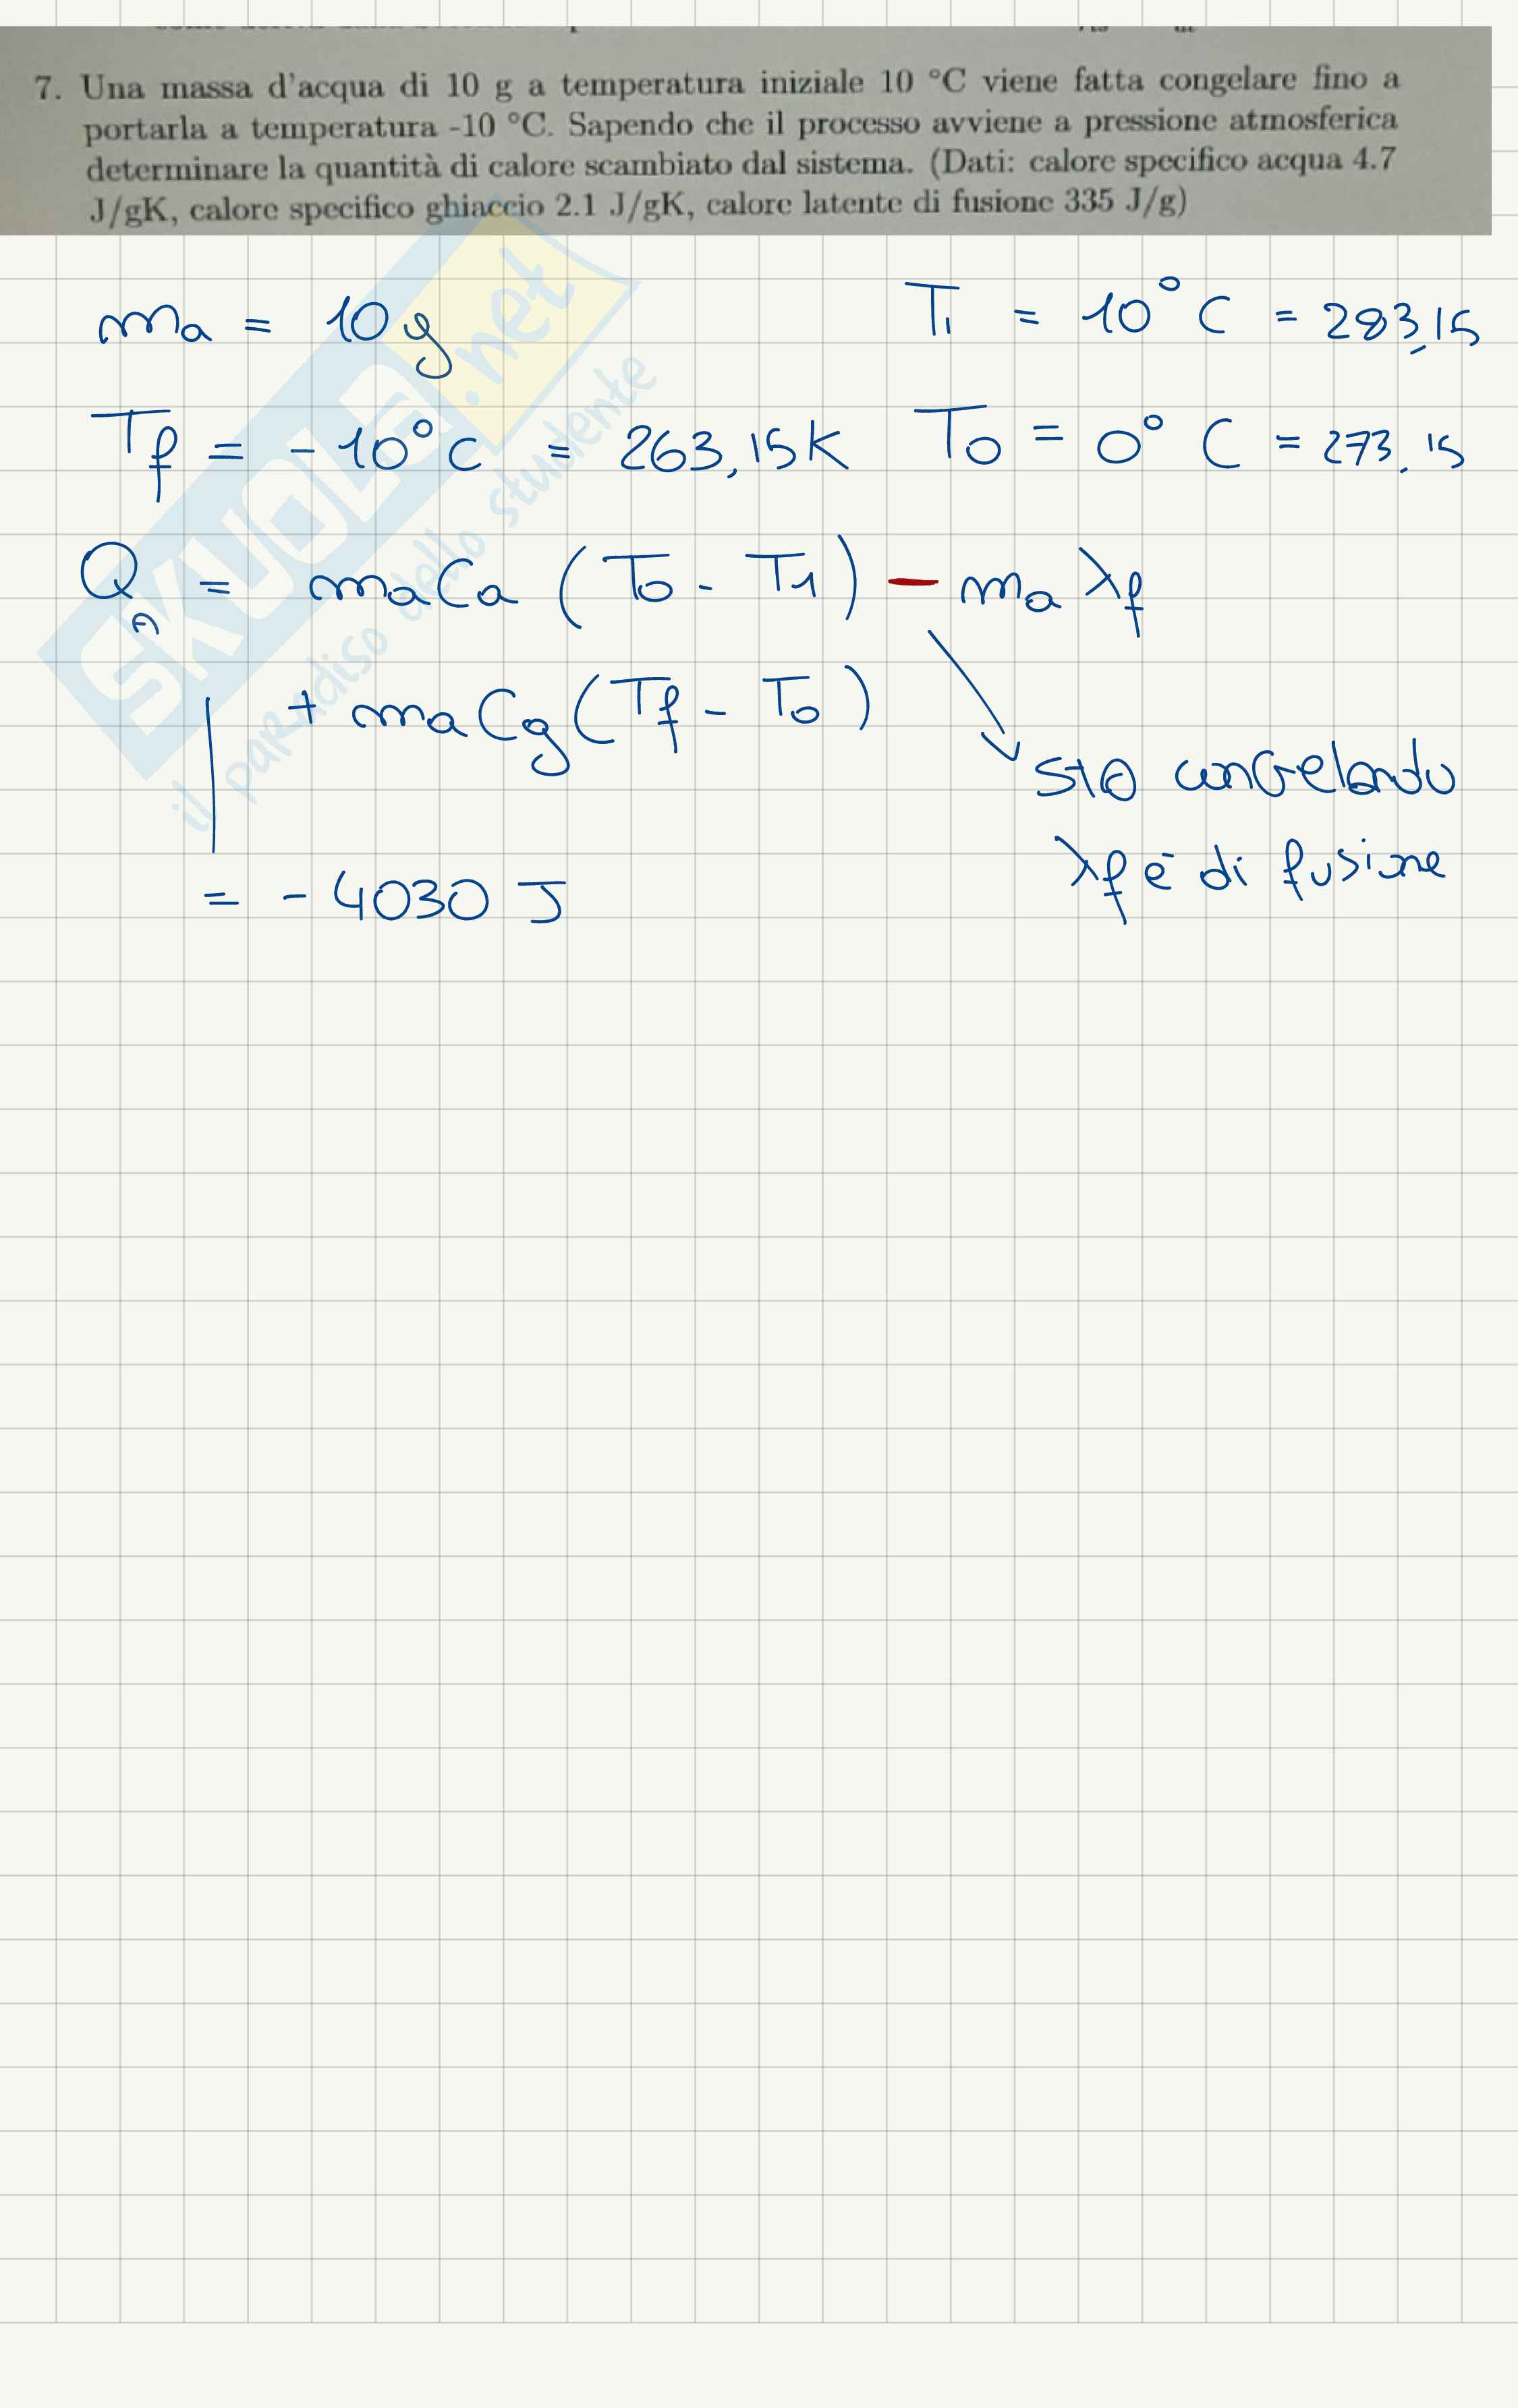 7. Una massa d'acqua di 10 g a temperatura iniziale 10 °C viene fatta congelare fino a
portarla a temperatura -10 °C. Sapendo che il processo avviene a pressione atmosferica
determinare la quantità di calore scambiato dal sistema. (Dati: calore specifico acqua 4.7
J/gK, calore specifico ghiaccio 2.1 J/gK, calore latente di fusione 335 J/g)
ma = 10g T1 = 10° C = 283,15
Tf = -10°C = 263,15K T0 = 0° C = 273.15
Q = maCa (T0 - T1) - ma λf
+ maCg (Tf - T0)
sto congelando
λf è di fusione
= - 4030 J
SKUOLA.net
il paradiso dello studente